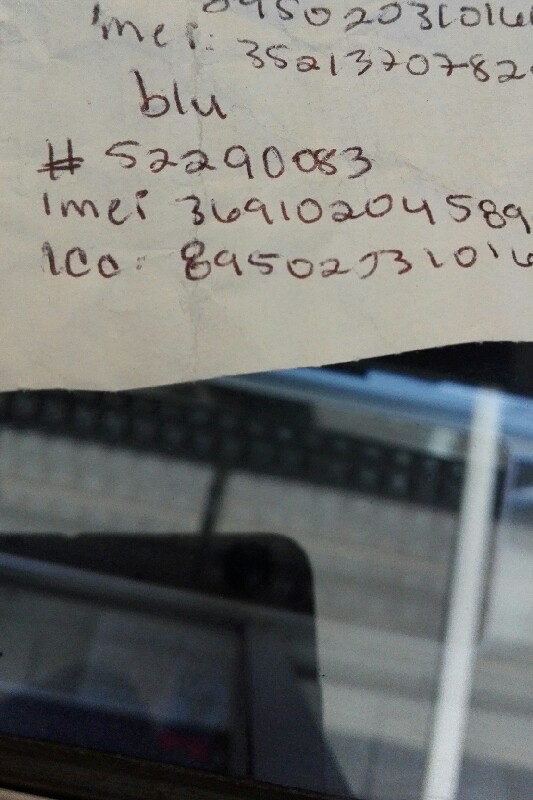 89502031016
imei: 3521370782
blu
# 52290083
imei 3691020458 9
ICC: 89502031016